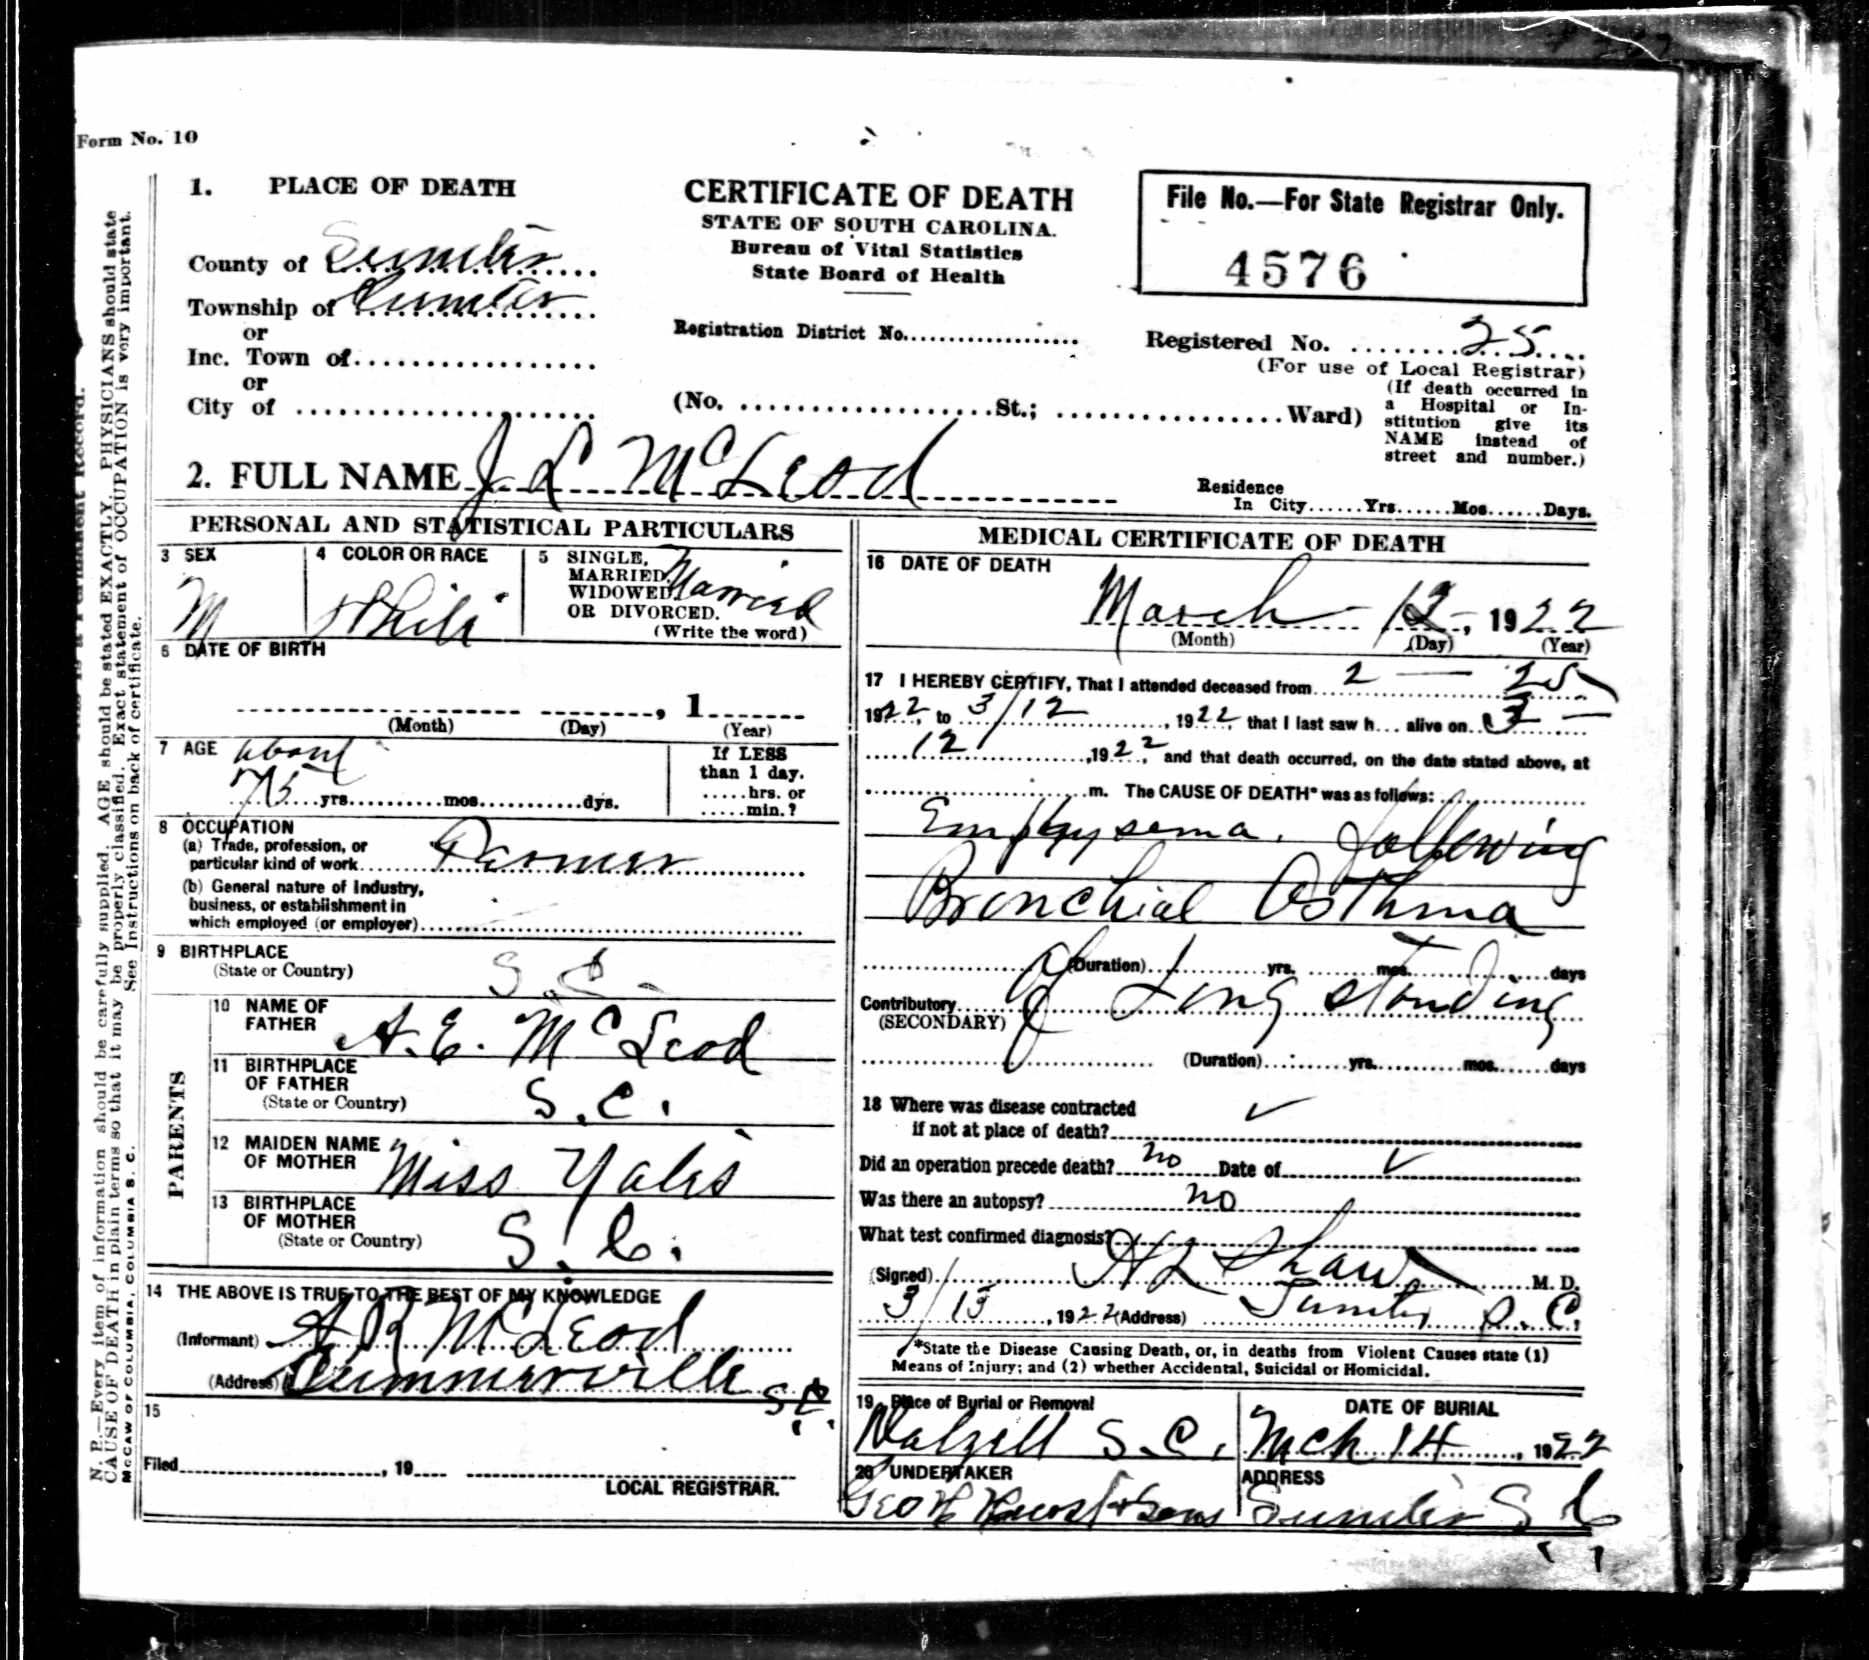 Form No. 10
1. PLACE OF DEATH
County of Sumter
Township of Sumter
or
Inc. Town of
or
City of
CERTIFICATE OF DEATH
STATE OF SOUTH CAROLINA.
Bureau of Vital Statistics
State Board of Health
Registration District No.
(No. St.; Ward)
File No.—For State Registrar Only.
4576
Registered No. 25
(For use of Local Registrar)
(If death occurred in
a Hospital or In-
stitution give its
NAME instead of
street and number.)
2. FULL NAME J L McLeod
Residence
In City......Yrs......Mos......Days.
PERSONAL AND STATISTICAL PARTICULARS
3 SEX
M
4 COLOR OR RACE
White
5 SINGLE,
MARRIED,
WIDOWED
OR DIVORCED.
(Write the word)
Married
6 DATE OF BIRTH
, 1
(Month) (Day) (Year)
7 AGE about
75 yrs. mos. dys.
If LESS
than 1 day.
.....hrs. or
.....min.?
8 OCCUPATION
(a) Trade, profession, or
particular kind of work Farmer
(b) General nature of Industry,
business, or establishment in
which employed (or employer)
9 BIRTHPLACE
(State or Country) S.C.
PARENTS
10 NAME OF
FATHER A.E. McLeod
11 BIRTHPLACE
OF FATHER
(State or Country) S.C.
12 MAIDEN NAME
OF MOTHER Miss Yates
13 BIRTHPLACE
OF MOTHER
(State or Country) S.C.
14 THE ABOVE IS TRUE TO THE BEST OF MY KNOWLEDGE
(Informant) A R McLeod
(Address) Summerville S.C.
15
Filed , 19
LOCAL REGISTRAR.
MEDICAL CERTIFICATE OF DEATH
16 DATE OF DEATH
March 12, 1922
(Month) (Day) (Year)
17 I HEREBY CERTIFY, That I attended deceased from 2 — 25
1922, to 3/12, 1922 that I last saw h... alive on 3 —
12, 1922, and that death occurred, on the date stated above, at
m. The CAUSE OF DEATH* was as follows:
Emphysema, following
Bronchial Asthma
(Duration) yrs. mos. days
of Long standing
Contributory
(SECONDARY)
(Duration) yrs. mos. days
18 Where was disease contracted
if not at place of death? ✓
Did an operation precede death? no Date of ✓
Was there an autopsy? no
What test confirmed diagnosis?
(Signed) H L Shaw M. D.
3/13, 1922 (Address) Sumter S.C.
*State the Disease Causing Death, or, in deaths from Violent Causes state (1)
Means of Injury; and (2) whether Accidental, Suicidal or Homicidal.
19 Place of Burial or Removal
Dalzell S.C.
DATE OF BURIAL
Mch 14, 1922
20 UNDERTAKER
Geo H Hurst & Sons
ADDRESS
Sumter S C
N. B.—Every item of information should be carefully supplied. AGE should be stated EXACTLY. PHYSICIANS should state
CAUSE OF DEATH in plain terms so that it may be properly classified. Exact statement of OCCUPATION is very important.
See Instructions on back of certificate.
McCAW OF COLUMBIA, COLUMBIA S. C.